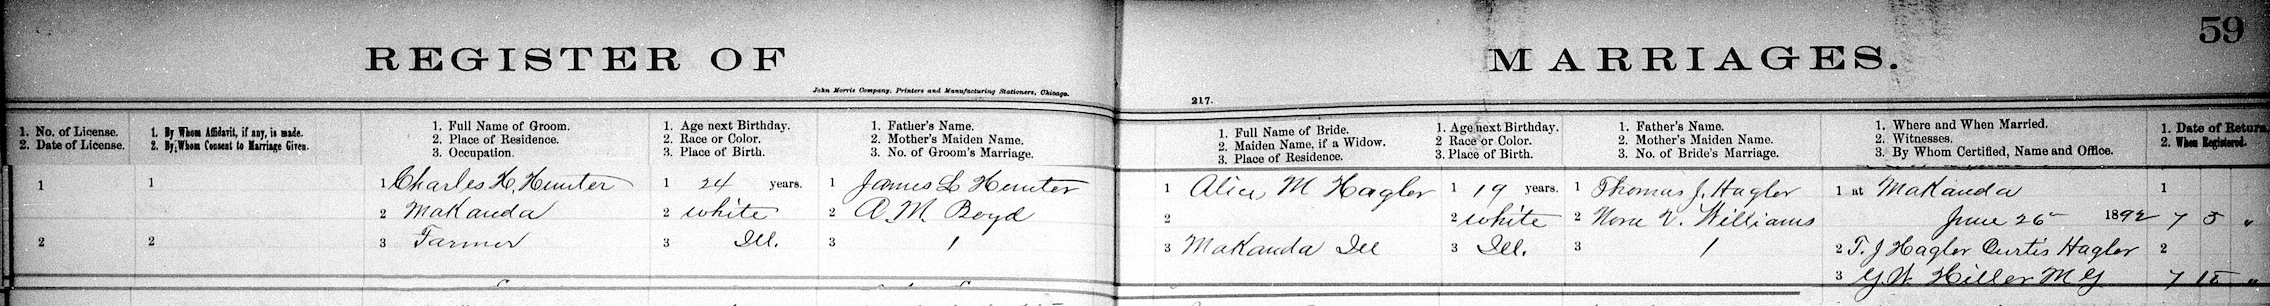 59
REGISTER OF MARRIAGES.
John Morris Company, Printers and Manufacturing Stationers, Chicago.
217.
1. No. of License.
2. Date of License.
1. By Whom Affidavit, if any, is made.
2. By Whom Consent to Marriage Given.
1. Full Name of Groom.
2. Place of Residence.
3. Occupation.
1. Age next Birthday.
2. Race or Color.
3. Place of Birth.
1. Father's Name.
2. Mother's Maiden Name.
3. No. of Groom's Marriage.
1. Full Name of Bride.
2. Maiden Name, if a Widow.
3. Place of Residence.
1. Age next Birthday.
2. Race or Color.
3. Place of Birth.
1. Father's Name.
2. Mother's Maiden Name.
3. No. of Bride's Marriage.
1. Where and When Married.
2. Witnesses.
3. By Whom Certified, Name and Office.
1. Date of Return.
2. When Registered.
1
2
1
2
1 Charles H. Hunter
2 Makanda
3 Farmer
1 24 years.
2 white
3 Ill.
1 James L Hunter
2 A M Boyd
3 1
1 Alice M Hagler
2
3 Makanda Ill
1 19 years.
2 white
3 Ill.
1 Thomas J. Hagler
2 Nora V. Williams
3 1
1 at Makanda
June 26 1892
2 T. J Hagler Curtis Hagler
3 G. W. Hiller M G
1
7 5 "
2
7 15 "